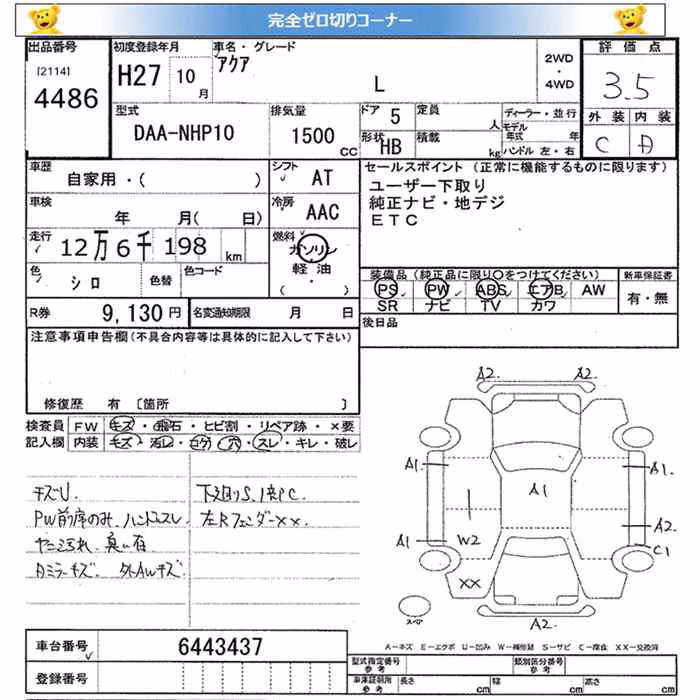 完全ゼロ切りコーナー
出品番号
[2114]
4486
初度登録年月
H27 10 月
車名・グレード
アクア
L
2WD
・
4WD
評価点
3.5
外装 内装
C B
型式
DAA-NHP10
排気量
1500 CC
ドア 5
形状 HB
定員 人
積載 kg
ディーラー・並行
モデル年式 年
ハンドル 左・右
車歴
自家用・( )
シフト AT
車検
年 月( 日)
冷房 AAC
走行
12万6千198 km
燃料 ガソリン
軽油
( ・ )
色 シロ
色替
色コード
R券 9,130 円
名変通知期限 月 日
セールスポイント (正常に機能するものに限ります)
ユーザー下取り
純正ナビ・地デジ
ETC
装備品(純正品に限り○をつけてください)
PS PW ABS エアB AW
SR ナビ TV カワ
新車保証書
有・無
後日品
注意事項申告欄(不具合内容等は具体的に記入して下さい)
修復歴 有 〔箇所 〕
検査員記入欄
FW キズ・飛石・ヒビ割・リペア跡・×要
内装 キズ・汚レ・コゲ・穴・スレ・キレ・破レ
キズU.
PW前席のみ. ハンドルスレ
ヤニ汚れ. 臭い有
Aミラーキズ. 外AWキズ
下廻りS. 1部PC.
左Rフェンダーxx.
A2. A2.
A1. A1.
A1
A1 W2 A2
C1
XX
スペア
A2
A−キズ E−エクボ U−凹み W−補修跡 S−サビ C−腐食 XX−交換済
車台番号 6443437
登録番号
型式指定番号 参考
類別区分番号 参考
車庫証明用 参考
長さ cm
幅 cm
高さ cm